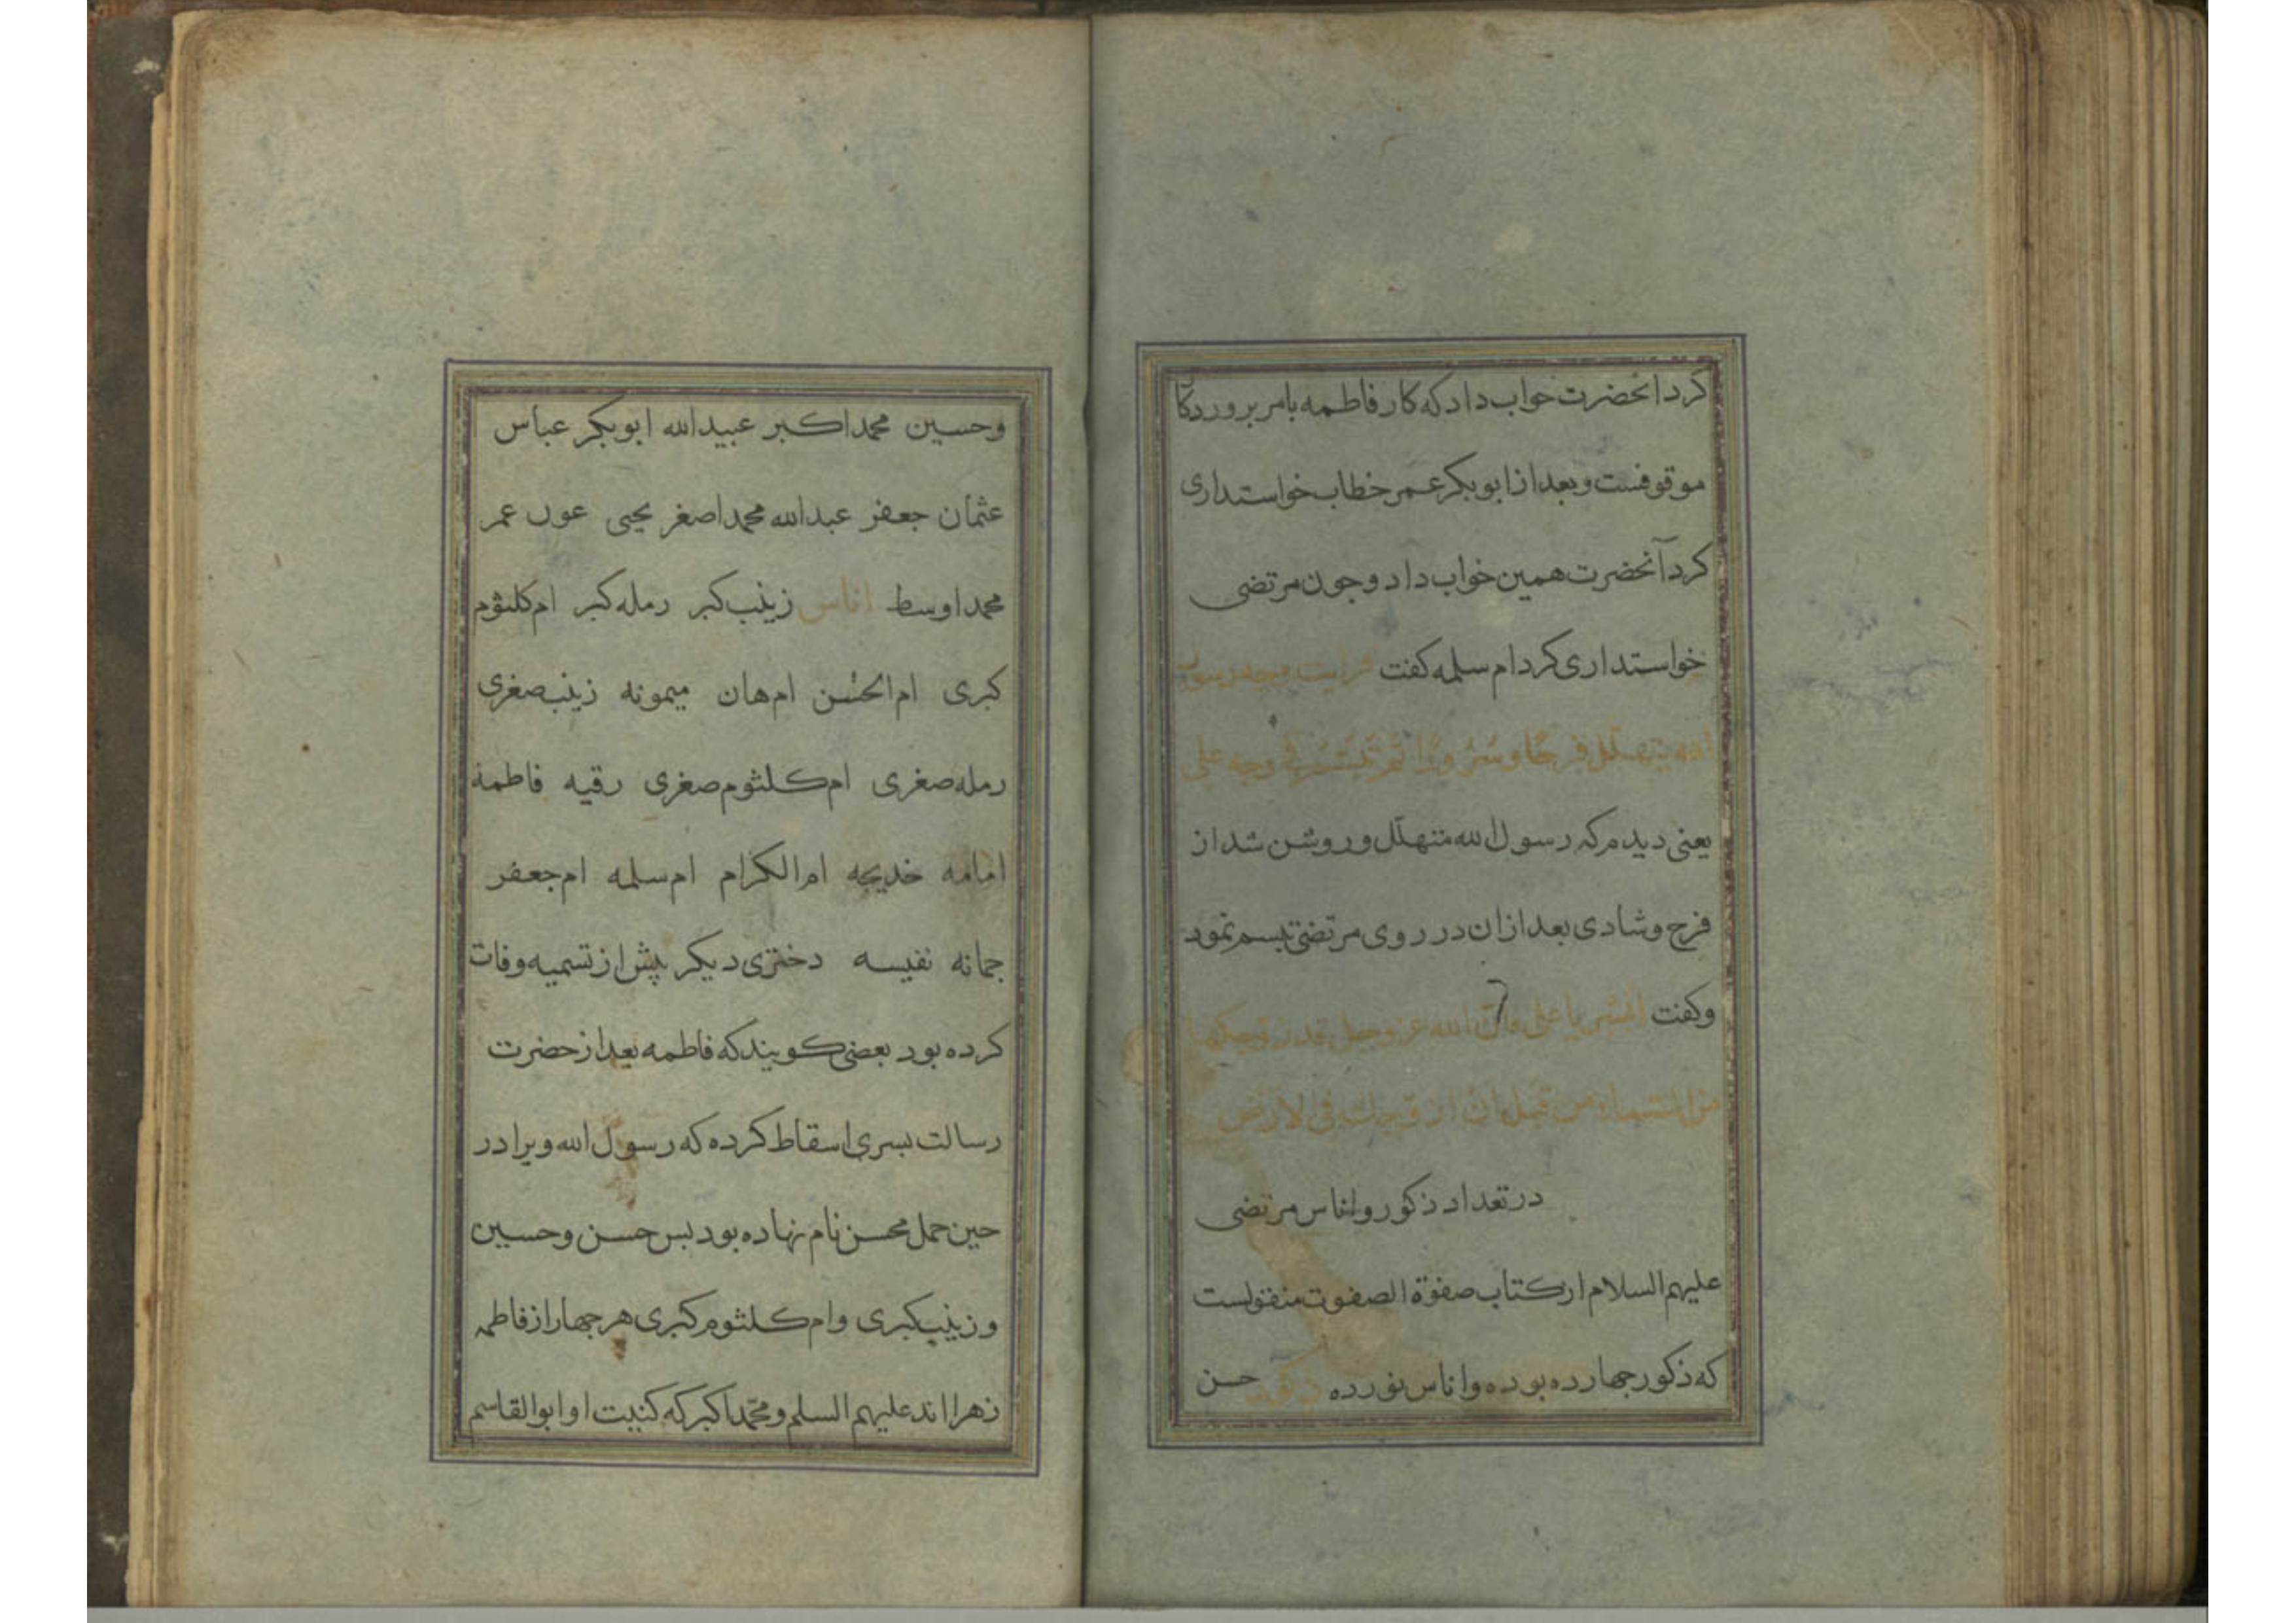 کرد انحضرت جواب داد که کار فاطمه بامر بروردکا
موقوفست و بعد از ابو بکر عمر خطاب خواستداری
کرد آنحضرت همین جواب داد و جون مرتضی
خواستداری کرد ام سلمه کفت فرایت وجه رسول
الله یتهلّل فرحًا و سُرورًا ثم تبسّم فی وجه علی
یعنی دیدم که رسول الله متهلّل و روشن شد از
فرح و شادی بعد از ان در روی مرتضی تبسم نمود
و کفت ابشر یا علی فانّ الله عز و جل قد زوجکها
من السماء من قبل ان ازوجك فی الارض
در تعداد ذکور و اناس مرتضی
علیهم السلام از کتاب صفوة الصفوت منقولست
که ذکور جهارده بوده و اناس نوزده ذکور حسن
و حسین محمد اکبر عبید الله ابو بکر عباس
عثمان جعفر عبد الله محمد اصغر یحیی عون عمر
محمد اوسط اناس زینب کبر رمله کبر ام کلثوم
کبری ام الحسن ام هان میمونه زینب صغری
رمله صغری ام کلثوم صغری رقیه فاطمة
امامه خدیجه ام الکرام ام سلمه ام جعفر
جمانه نفیسه دختری دیکر پیش از تسمیه وفات
کرده بود بعضی کویند که فاطمه بعد از حضرت
رسالت بسری اسقاط کرده که رسول الله ویرا در
حین حمل محسن نام نهاده بود بس حسن و حسین
و زینب کبری و ام کلثوم کبری هر جهار از فاطمه
زهرا اند علیهم السلم و محمّد اکبر که کنیت او ابو القاسم